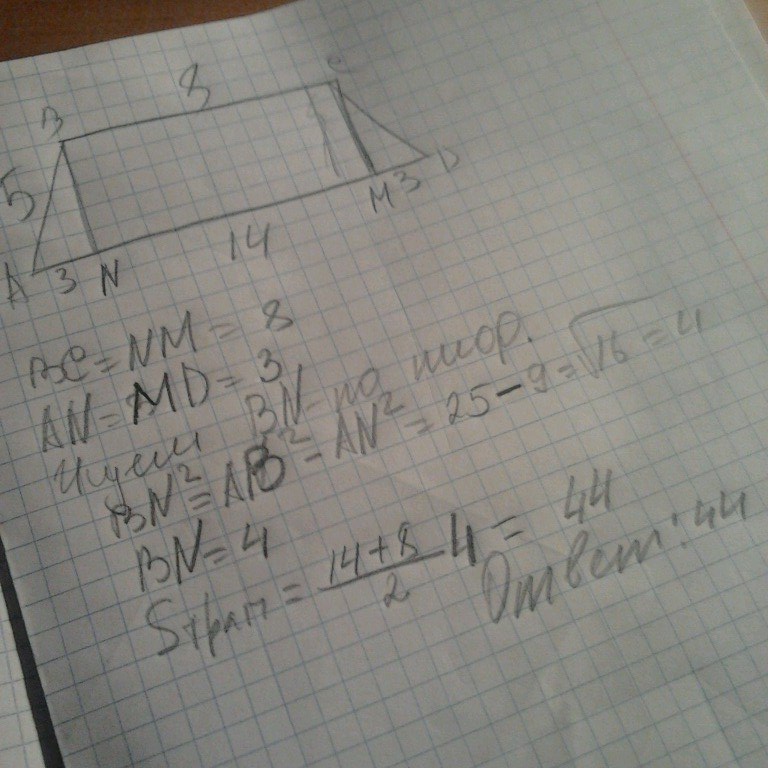 8
B C
5
A 3 N 14 M 3 D
BC = NM = 8
AN = MD = 3
Ищем BN - по теор.
BN² = AB² = AN² = 25 - 9 = √16 = 4
BN = 4
Sтрап = (14+8)/2 4 = 44
Ответ: 44